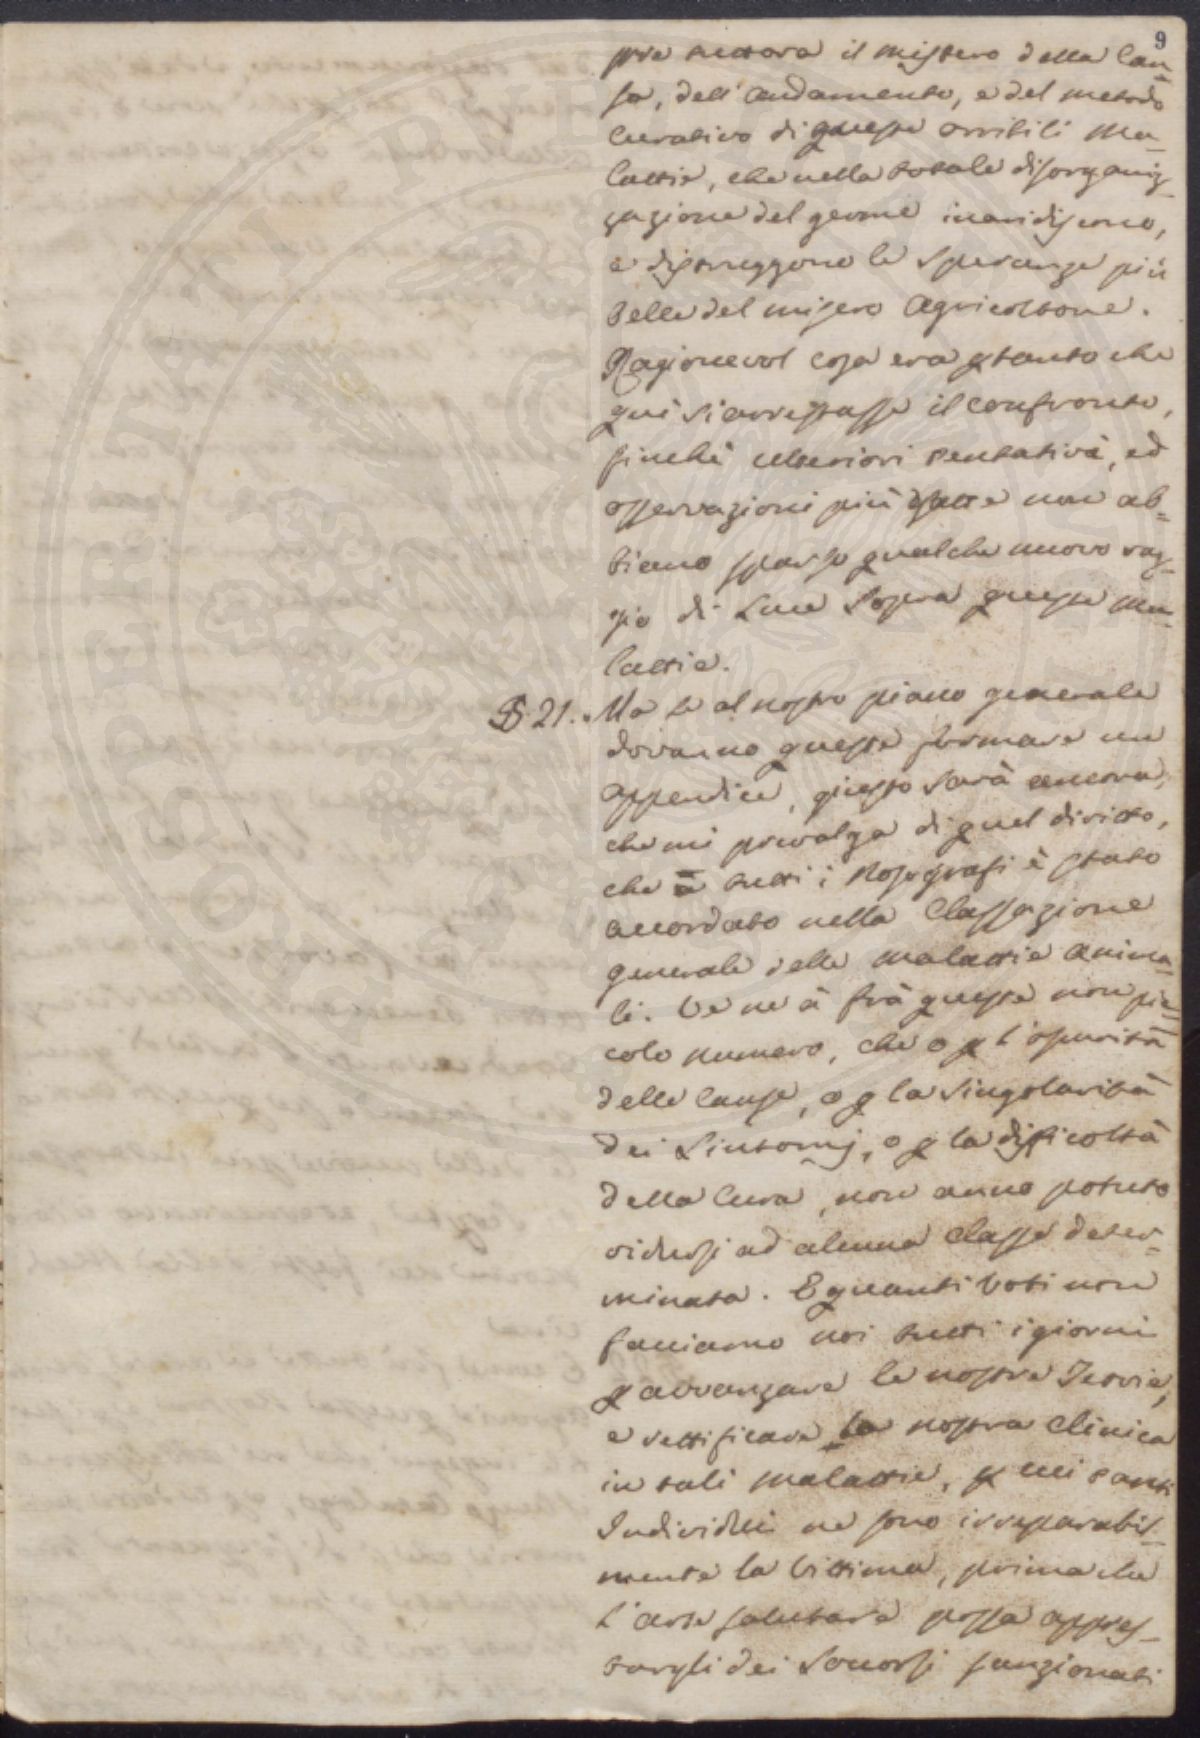 9
pre tuttora il mistero della Cau¬
sa, dell'andamento, e del metodo
Curativo di queste orribili Ma¬
lattie, che nella totale disorganiz¬
zazione del germe inaridiscono,
e distruggono le Speranze più
belle del misero Agricoltore.
Ragionevol cosa era ptanto che
quì si arrestasse il confronto,
finchè ulteriori tentativi, ed
osservazioni più esatte non ab¬
biano sparso qualche nuovo rag¬
gio di Luce Sopra queste ma¬
lattie.
§ 21. Ma se al nostro piano generale
dovranno queste formare un
appendice, giusto sarà ancora,
che mi prevalga di quel diritto,
che a tutti i Nosografi è stato
accordato nella Classazione
generale delle malattie anima¬
li. Ve ne à frà queste non pic¬
colo numero, che o p l'oscurità
delle Cause, o p la Singolarità
dei Sintomj, o p la difficoltà
della Cura, non anno potuto
ridursi ad alcuna Classe deter¬
minata. E quanti Voti non
facciamo noi tutti i giorni
p avvanzare le nostre Teorie,
e rettificare la nostra Clinica
in tali malattie, p cui tanti
Individui ne sono irreparabil¬
mente la Vittima, prima che
l'arte salutare possa appres¬
targli dei Soccorsi sanzionati